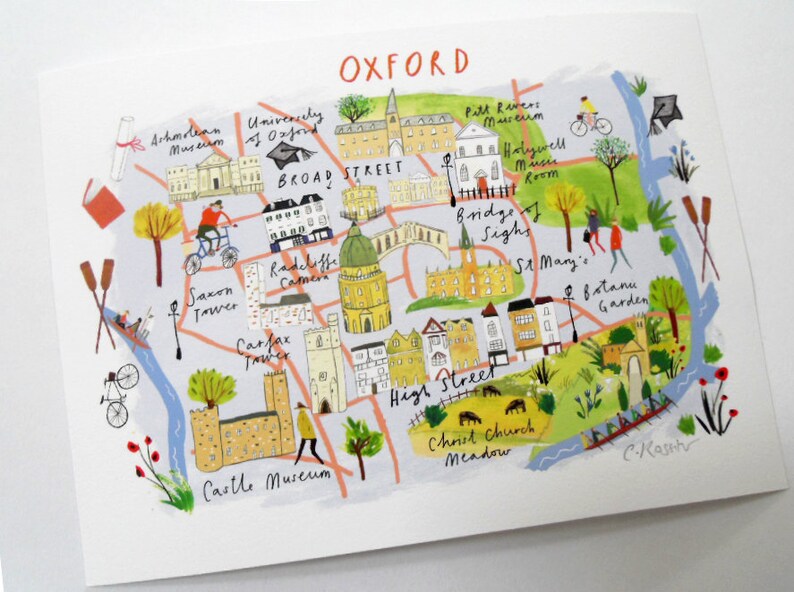 OXFORD
Ashmolean
Museum
University
of Oxford
Pitt Rivers
Museum
Holywell
Music
Room
BROAD STREET
Bridge of
Sighs
Radcliffe
Camera
St Mary's
Saxon
Tower
Botanic
Garden
Carfax
Tower
High Street
Christ Church
Meadow
Castle Museum